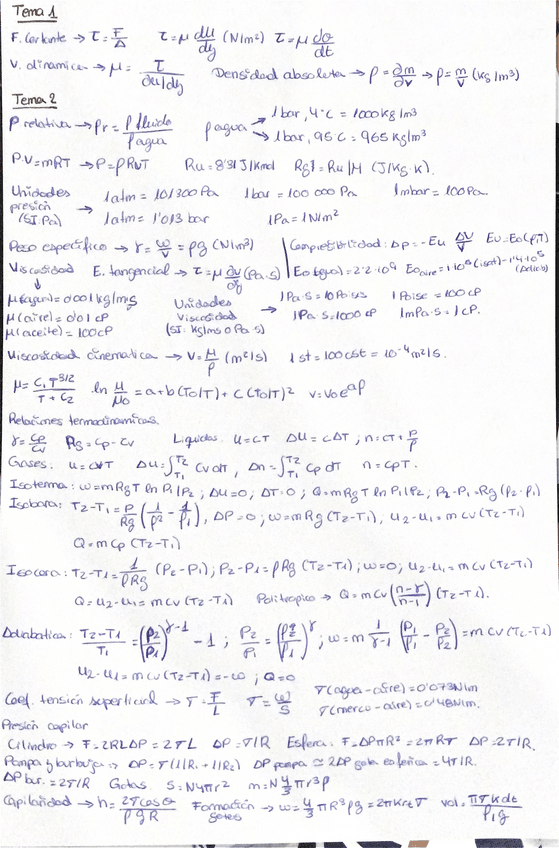 Tema 1
F. Cortante → τ = F/A   τ = μ du/dy (N/m²)   τ = μ dσ/dt
V. dinamica → μ = τ/(du/dy)   Densidad absoluta → ρ = ∂m/∂V → ρ = m/V (kg/m³)
Tema 2
ρ relativa → ρr = ρ fluido/ρ agua   ρ agua → 1 bar, 4ºC = 1000 kg/m³
→ 1 bar, 95ºC = 965 kg/m³
P·V = mRT → P = ρRgT   Ru = 8'31 J/Kmol   Rg = Ru/M (J/Kg·K).
Unidades presión (SI:Pa) → 1 atm = 101300 Pa   1 bar = 100 000 Pa   1 mbar = 100 Pa.
1 atm = 1'013 bar   1 Pa = 1 N/m²
Peso especifico → γ = ω/V = ρg (N/m³)   Compresibilidad: ΔP = -Eu ΔV/V   Eu = Eo(P,T)
Viscosidad   E. tangencial → τ = μ du/dy (Pa·s)   Eo(agua) = 2'2·10⁹   Eo aire = 1·10⁵ (isot) - 1'4·10⁵ (adiab)
μ(agua) = 0'001 kg/mg   Unidades Viscosidad (SI: kg/ms o Pa·s) → 1 Pa·s = 10 Poises   1 Poise = 100 cP
μ(aire) = 0'01 cP   1 Pa·s = 1000 cP   1 mPa·s = 1 cP.
μ(aceite) = 100 cP
Viscosidad cinematica → ν = μ/ρ (m²/s)   1 st = 100 cst = 10⁻⁴ m²/s.
μ = C₁T^3/2/(T + C₂)   ln μ/μ₀ = a + b(To/T) + c(To/T)²   ν = ν₀e^aP
Relaciones termodinamicas.
γ = cp/cv   Rg = cp - cv   Liquidos: u = cT   Δu = cΔT ; h = cT + P/ρ
Gases: u = cvT   Δu = ∫T₁^T₂ cv dT, Δh = ∫T₁^T₂ cp dT   h = cpT.
Isoterma: ω = mRgT ln P₁/P₂ ; ΔU = 0 ; ΔT = 0 ; Q = mRgT ln P₁/P₂ ; P₂ - P₁ = Rg(ρ₂ - ρ₁)
Isobara: T₂ - T₁ = P/Rg (1/ρ₂ - 1/ρ₁), ΔP = 0 ; ω = mRg(T₂ - T₁), u₂ - u₁ = m cv (T₂ - T₁)
Q = m cp (T₂ - T₁)
Isocora: T₂ - T₁ = 1/ρRg (P₂ - P₁) ; P₂ - P₁ = ρRg (T₂ - T₁) ; ω = 0 ; u₂ - u₁ = m cv (T₂ - T₁)
Q = u₂ - u₁ = m cv (T₂ - T₁)   Politropico → Q = m cv (n-γ/n-1)(T₂ - T₁).
Adiabatica: T₂ - T₁/T₁ = (ρ₂/ρ₁)^γ-1 - 1 ; P₂/P₁ = (ρ₂/ρ₁)^γ ; ω = m 1/γ-1 (P₁/ρ₁ - P₂/ρ₂) = m cv (T₂ - T₁)
u₂ - u₁ = m cv (T₂ - T₁) = -ω ; Q = 0
Coef. tensión superficial → σ = F/L   σ = ω/S   σ(agua - aire) = 0'073 N/m
σ(merco - aire) = 0'48 N/m.
Presión capilar
Cilindro → F = 2RLΔP = 2σL   ΔP = σ/R   Esfera: F = ΔPπR² = 2πRσ   ΔP = 2σ/R.
Pompa y burbuja → ΔP = σ(1/R₁ + 1/R₂)   ΔP pompa ≃ 2ΔP gota esferica = 4σ/R.
ΔP bur. = 2σ/R   Gotas. S = N4πr²   m = N 4/3 πr³ρ
Capilaridad → h = 2σcosθ/ρgR   Formación gotas → ω = 4/3 πR³ρg = 2πKrtσ   vol = ππKdt/ρ₁g